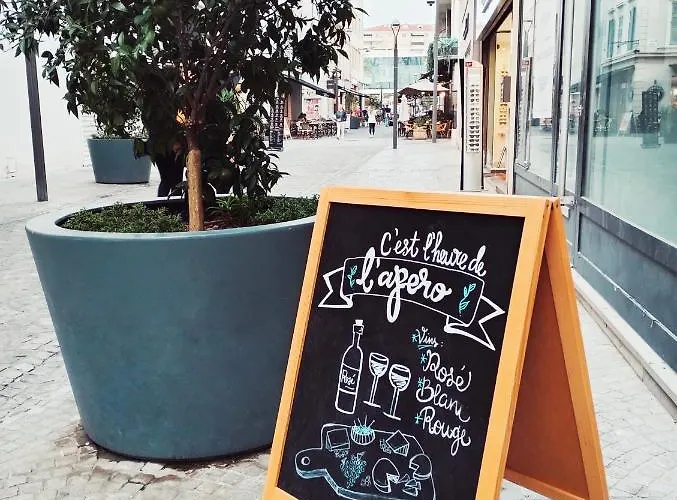 C'est l'heure de
l'apero
Vins:
*Rosé
*Blanc
*Rouge
Rosé